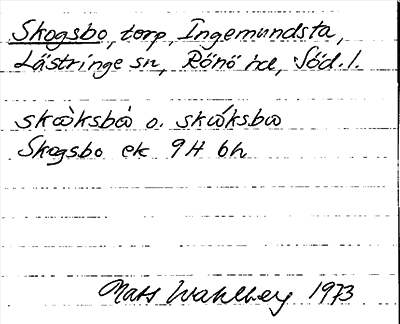 Skogsbo, torp, Ingemundsta,
Lästringe sn, Rönö hd, Söd. l.
skὼksbὼ o. skώksbω
Skogsbo ek 9H 6h
Mats Wahlberg 1973